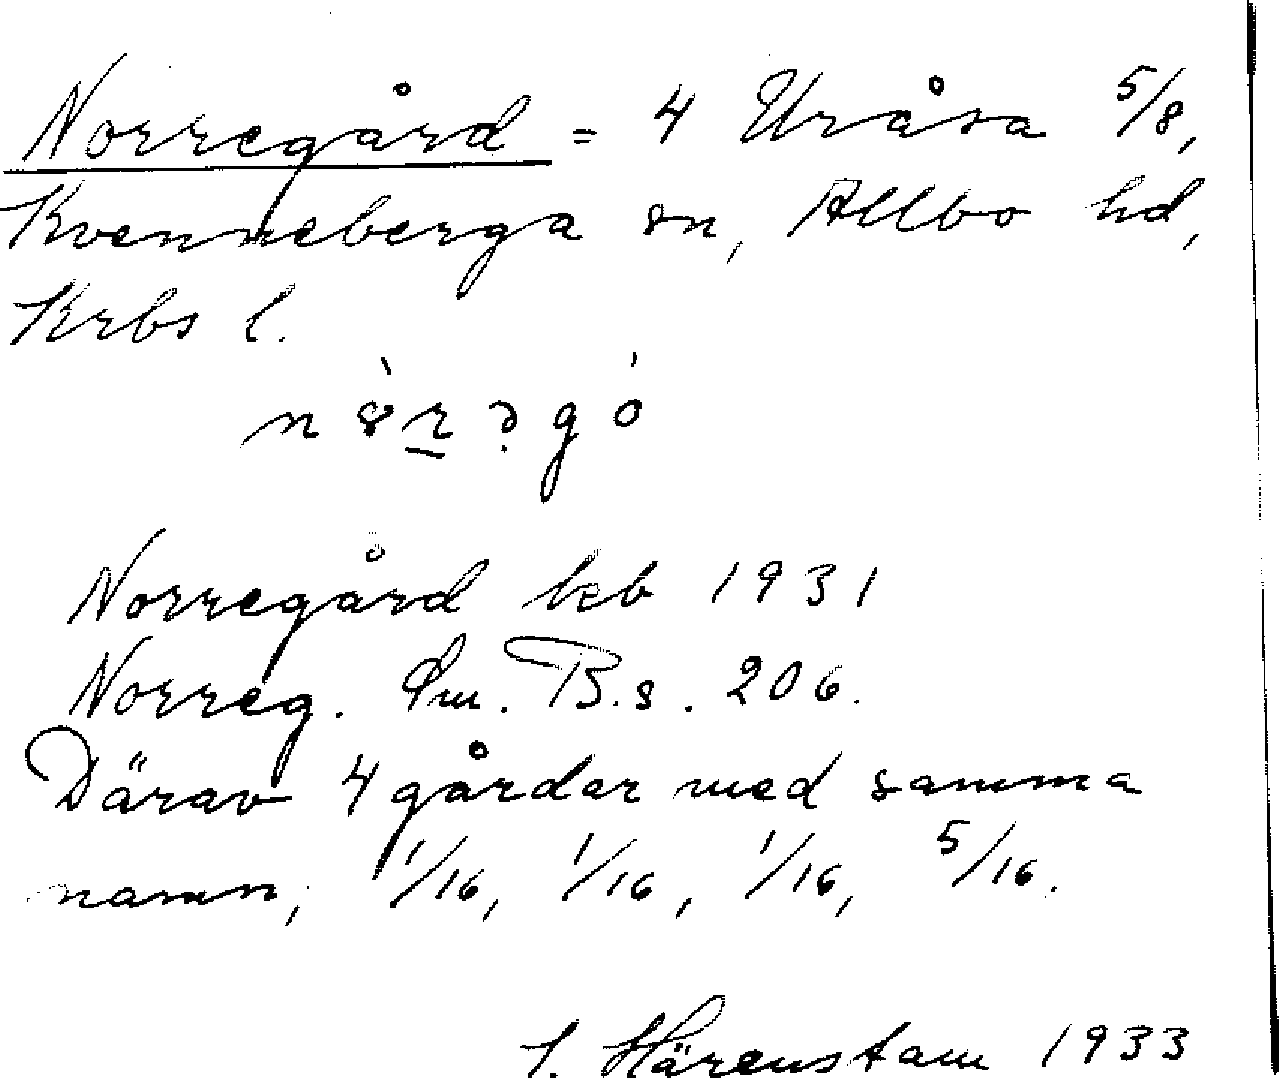 Norregård = 4 Uråsa 5/8,
Kvenneberga sn, Allbo hd,
Krbs l.
Norregård kb 1931
Norreg. Sm. B. s. 206.
Därav 4 gårdar med samma
namn, 1/16, 1/16, 1/16, 5/16.
Härenstam 1933